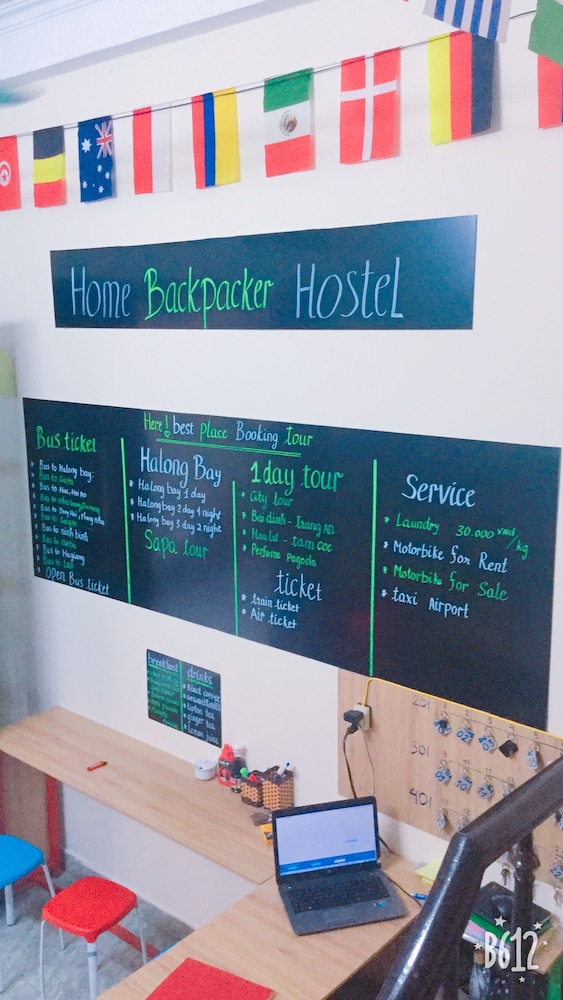 Home Backpacker Hostel
Here! best place Booking tour
Bus ticket
* Bus to Halong bay:
Bus to Sapa
* Bus to Hue, Hoi An
* Bus to
* Bus to Dong Hoi, Phong Nha
* Bus to
* Bus to ninh binh
* Bus to
* Bus to Hagiang
* Bus to Lao
* Open Bus ticket
Halong Bay
* Halong bay 1 day
* Halong bay 2 day 1 night
* Halong bay 3 day 2 night
Sapa tour
1 day tour
* City tour
* Bai dinh - Trang An
* Hoa Lu - Tam Coc
* Perfume Pagoda
ticket
* train ticket
* Air ticket
Service
* Laundry 30.000 vnd/kg
* Motorbike for Rent
* Motorbike for Sale
* taxi Airport
breakfast
drinks
* Black coffee
* lipton tea
* ginger tea
* lemon juice
201
301
401
B612